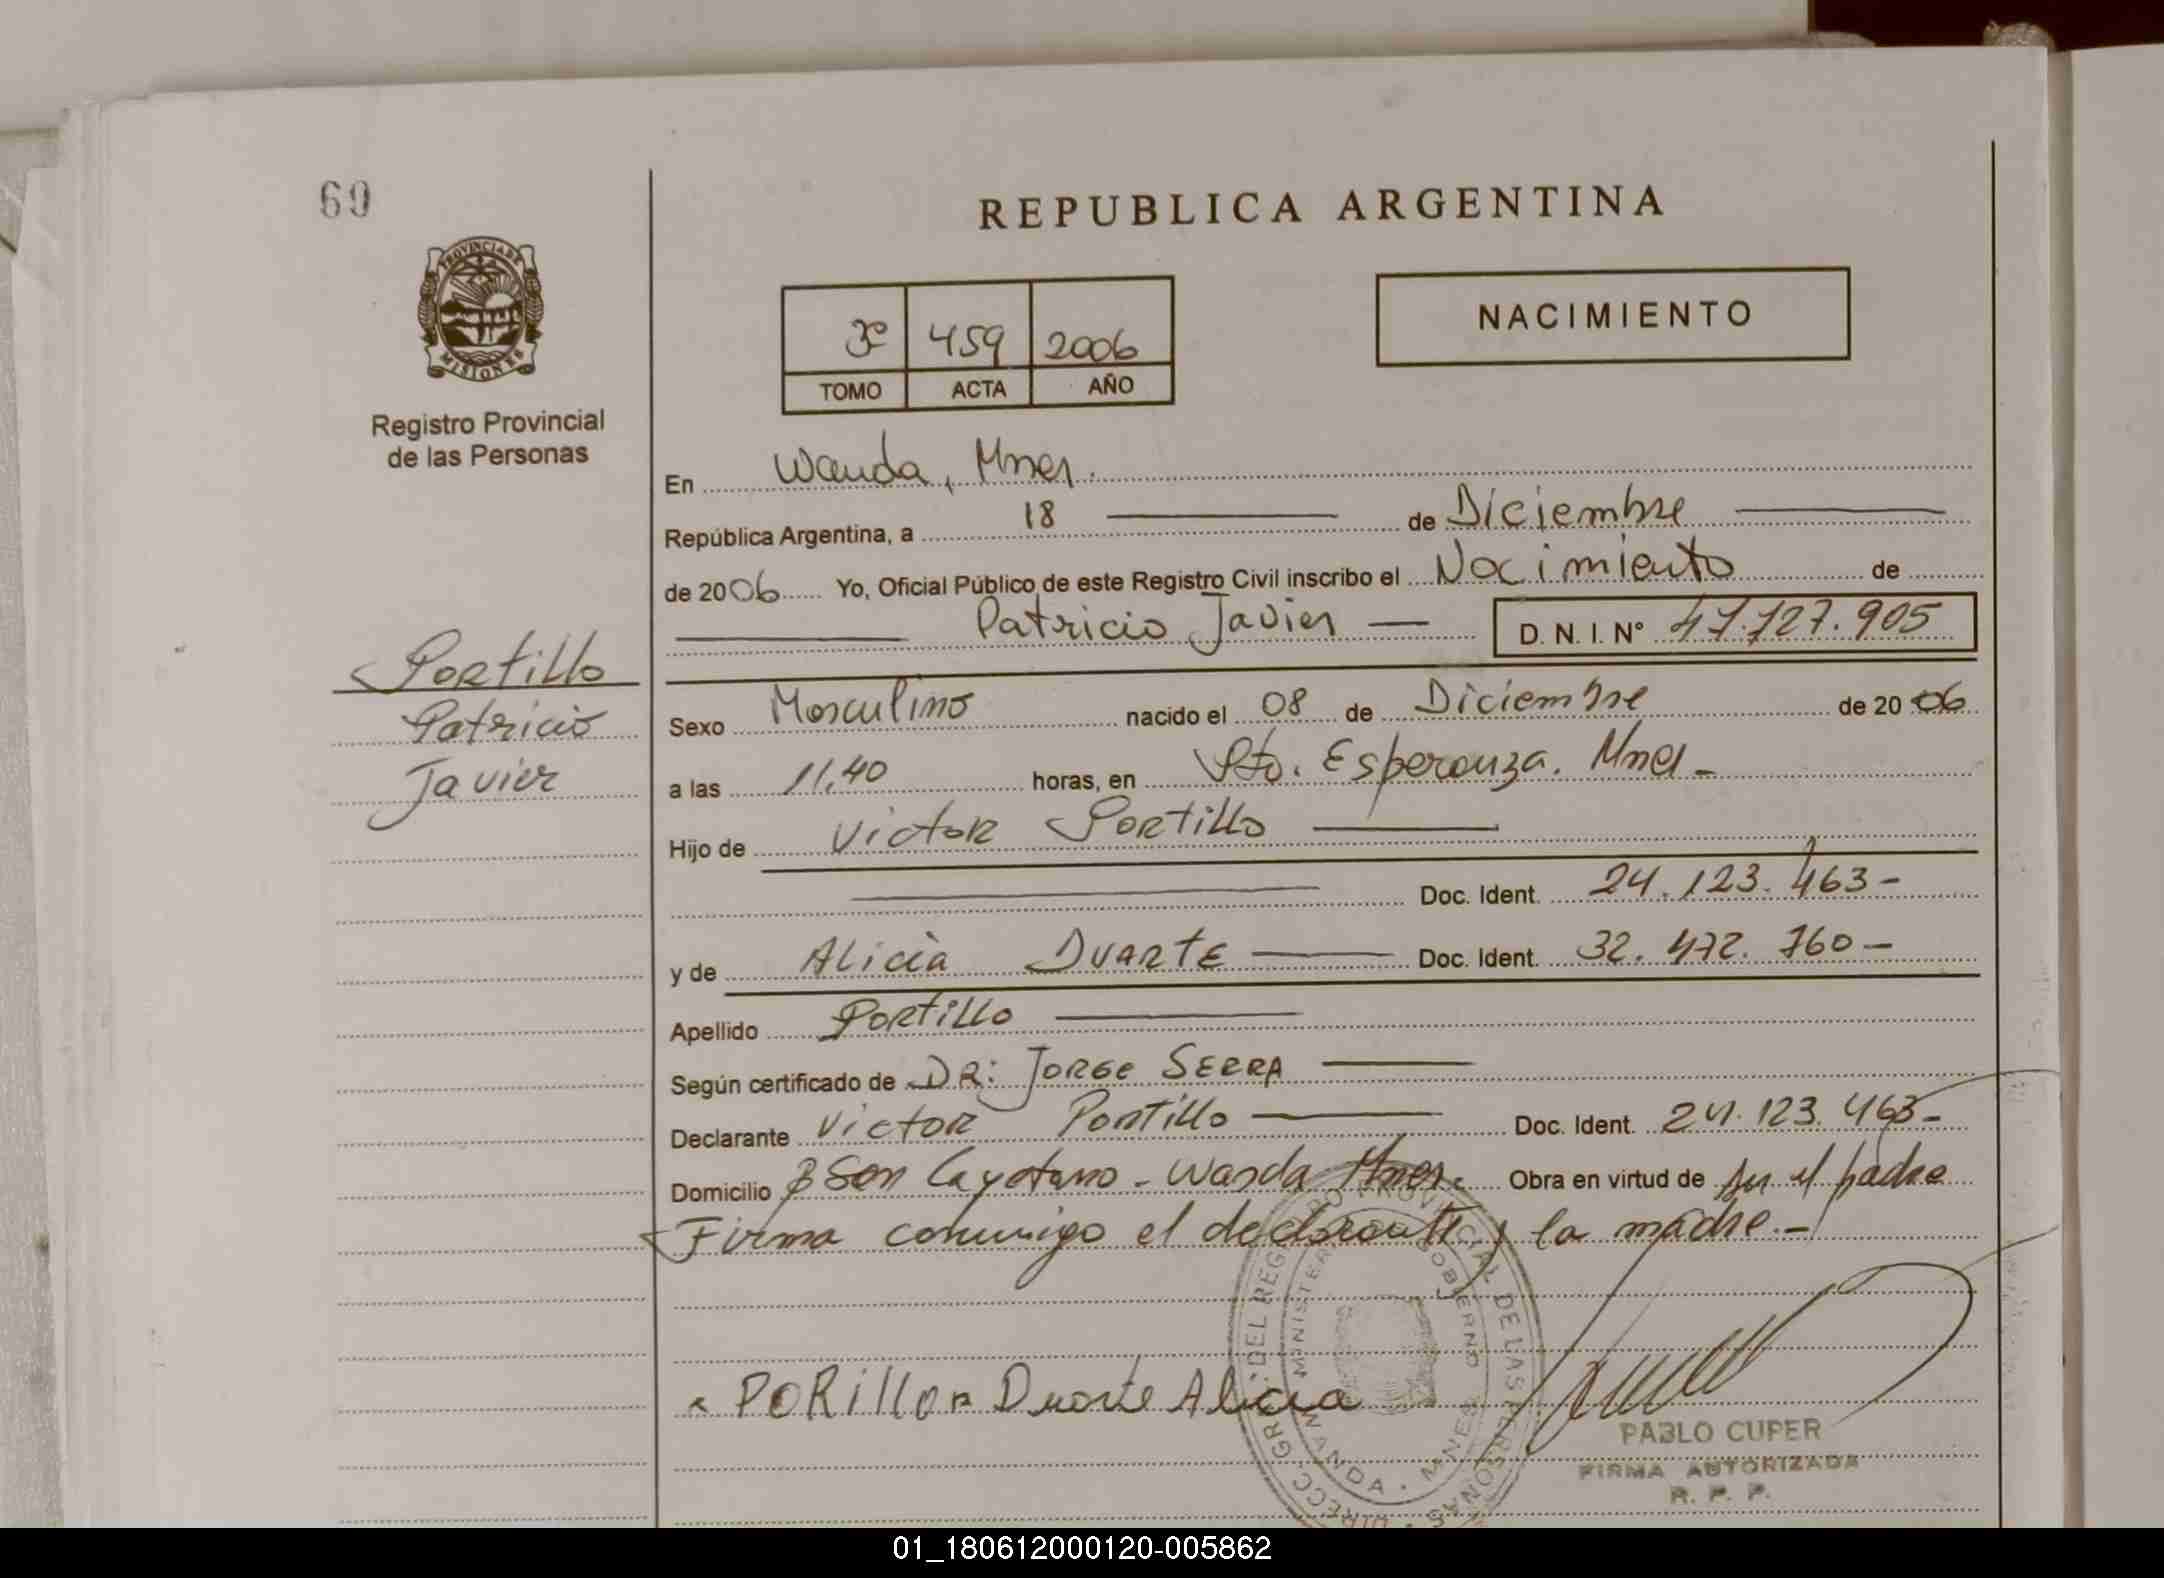 69
REPUBLICA ARGENTINA
PROVINCIA DE
MISIONES
Registro Provincial
de las Personas
3º 459 2006
TOMO ACTA AÑO
NACIMIENTO
En Wanda, Mnes.
República Argentina, a 18 de Diciembre
de 2006 Yo, Oficial Público de este Registro Civil inscribo el Nacimiento de
Patricio Javier D. N. I. Nº 47.727.905
Portillo
Patricio
Javier
Sexo Masculino nacido el 08 de Diciembre de 2006
a las 11,40 horas, en Pto. Esperanza. Mnes -
Hijo de Victor Portillo
Doc. Ident. 24.123.463-
y de Alicia Duarte Doc. Ident. 32.472.760-
Apellido Portillo
Según certificado de DR: Jorge Serra
Declarante Victor Portillo Doc. Ident. 24.123.463-
Domicilio Bº San Cayetano - Wanda Mnes. Obra en virtud de ser el padre
Firma conmigo el declarante y la madre.-
PORillo Duarte Alicia
DIRECC. GRAL. DEL REGISTRO PROVINCIAL DE LAS PERSONAS
MINISTERIO GOBIERNO
WANDA - MNES
PABLO CUPER
FIRMA AUTORIZADA
R. P. P.
01_180612000120-005862